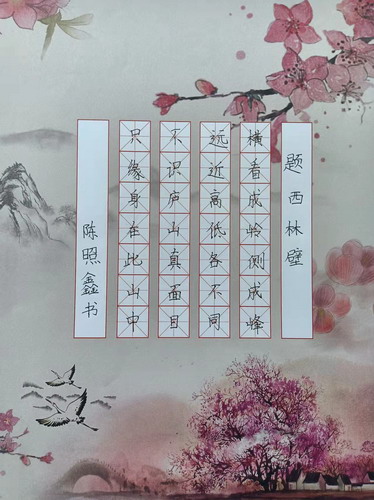 题西林壁
横看成岭侧成峰
远近高低各不同
不识庐山真面目
只缘身在此山中
陈照鑫书